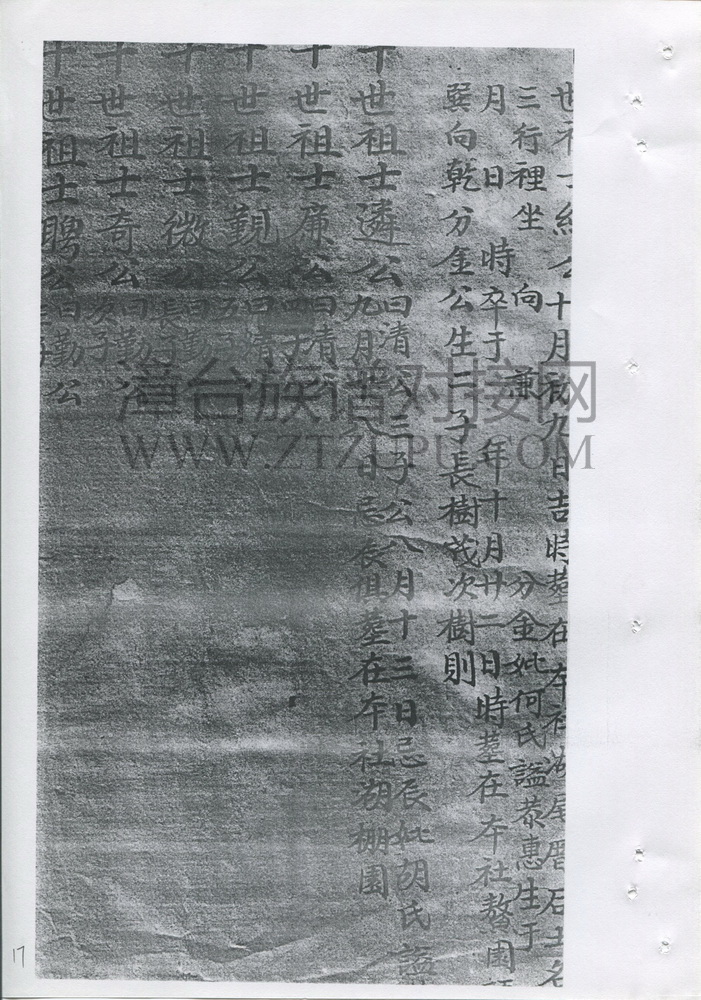 世祖士純公十月初九日吉時墓在本社湖尾厝石土名
三行裡坐 向 兼 分金妣何氏諡恭惠生于
月 日 時卒于 年十月廿二日時墓在本社鰲園
巽向乾分金公生二子長樹茂次樹則
十世祖士遴公曰清公三子公八月十三日忌辰妣胡氏諡
九月 八日忌辰俱墓在本社湖棚園
十世祖士廉公曰清公四子
十世祖士觀公曰清 五子
十世祖士微公曰勤 長子
十世祖士奇公曰勤公次子
十世祖士聘公曰勤公
漳台族谱对接网
WWW.ZTZUPU.COM
17